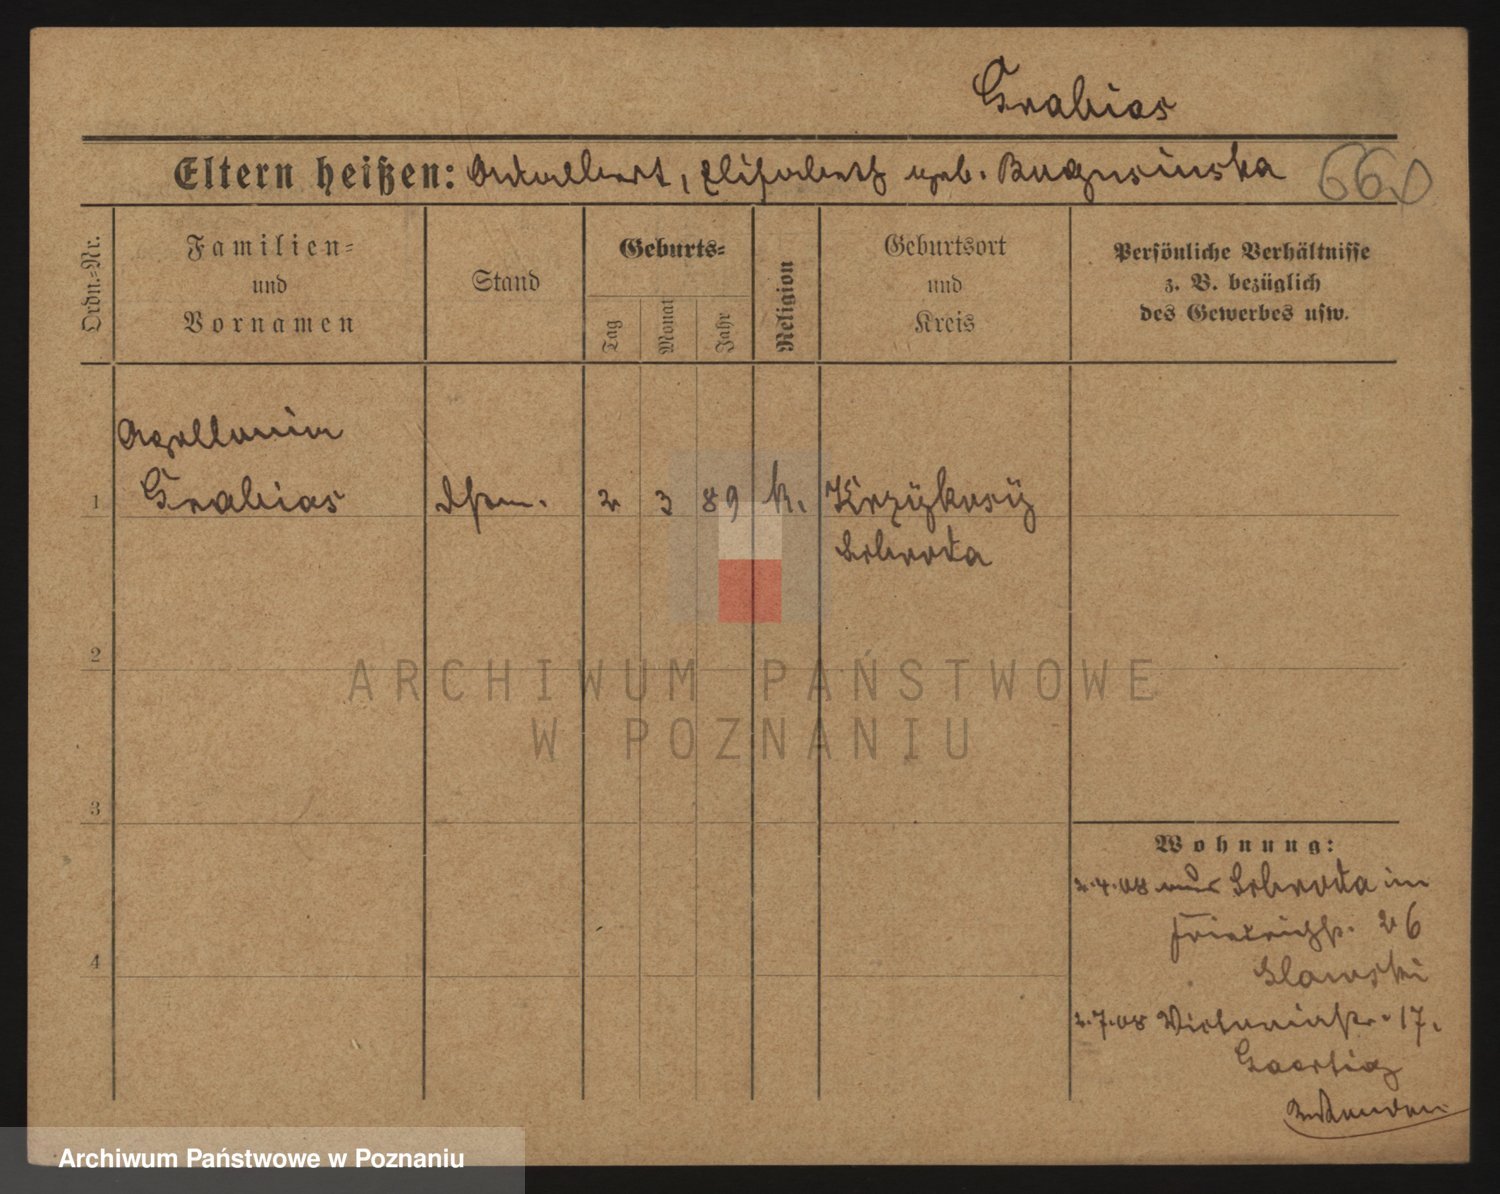 Grabias
Eltern heißen: Adalbert, Elisabeth geb. Bugusinska
660
Ordn.-Nr.
Familien-
und
Vornamen
Stand
Geburts-
Tag
Monat
Jahr
Religion
Geburtsort
und
Kreis
Persönliche Verhältnisse
z. B. bezüglich
des Gewerbes usw.
Apollonia
1 Grabias Dsm. 2 3 89 k. Krzykosy
Schroda
2
ARCHIWUM PAŃSTWOWE
W POZNANIU
3
Wohnung:
2.4.08 aus Schroda in
Friedrichstr. 26
Slawski
4
2.7.08 Victoriastr. 17.
Goertig
Archiwum Państwowe w Poznaniu